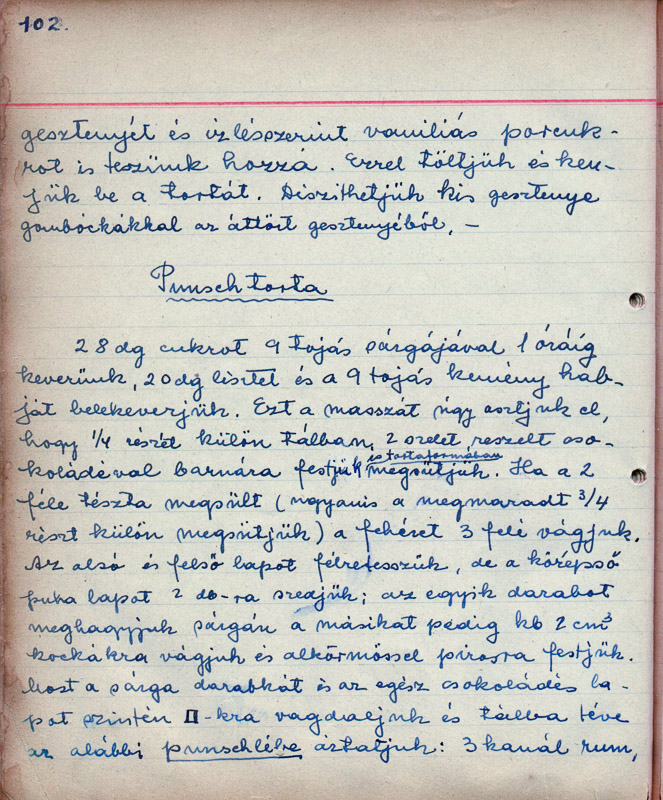 102.
gesztenyét és izlésszerint vaniliás porcuk-
rot is teszünk hozzá. Ezzel töltjük és ken-
jük be a tortát. Díszithetjük kis gesztenye
gombóckákkal az áttört gesztenyéből. —
Punsch torta
28 dg cukrot 9 tojás sárgájával 1 óráig
keverünk, 20 dg lisztet és a 9 tojás kemény hab-
ját belekeverjük. Ezt a masszát úgy osztjuk el,
hogy 1/4 részét külön tálban, 2 szelet reszelt cso-
és tortaformában
koládéval barnára festjük megsütjük. Ha a 2
féle tészta megsült (ugyanis a megmaradt 3/4
részt külön megsütjük) a fehéret 3 felé vágjuk.
Az alsó és felső lapot félretesszük, de a középső
puha lapot 2 db-ra szedjük; az egyik darabot
meghagyjuk sárgán a másikat pedig kb 2 cm³
kockákra vágjuk és alkörmössel pirosra festjük.
Most a sárga darabkát és az egész csokoládés la-
pot szintén □-kra vagdaljuk és tálba téve
az alábbi punschlébe áztatjuk: 3 kanál rum,